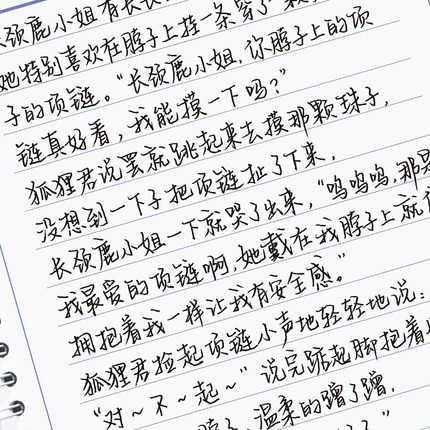 长颈鹿小姐有长长
她特别喜欢在脖子上挂一条穿了
子的项链。“长颈鹿小姐，你脖子上的项
链真好看，我能摸一下吗？”
狐狸君说罢就跳起来去摸那颗珠子，
没想到一下子把项链扯了下来，
长颈鹿小姐一下就哭了出来，“呜呜呜，那是
我最爱的项链啊，她戴在我脖子上就
拥抱着我一样让我有安全感。”
狐狸君捡起项链小声地轻轻地说：
“对~不~起~”说完踮起脚抱着
脖子，温柔的蹭了蹭，